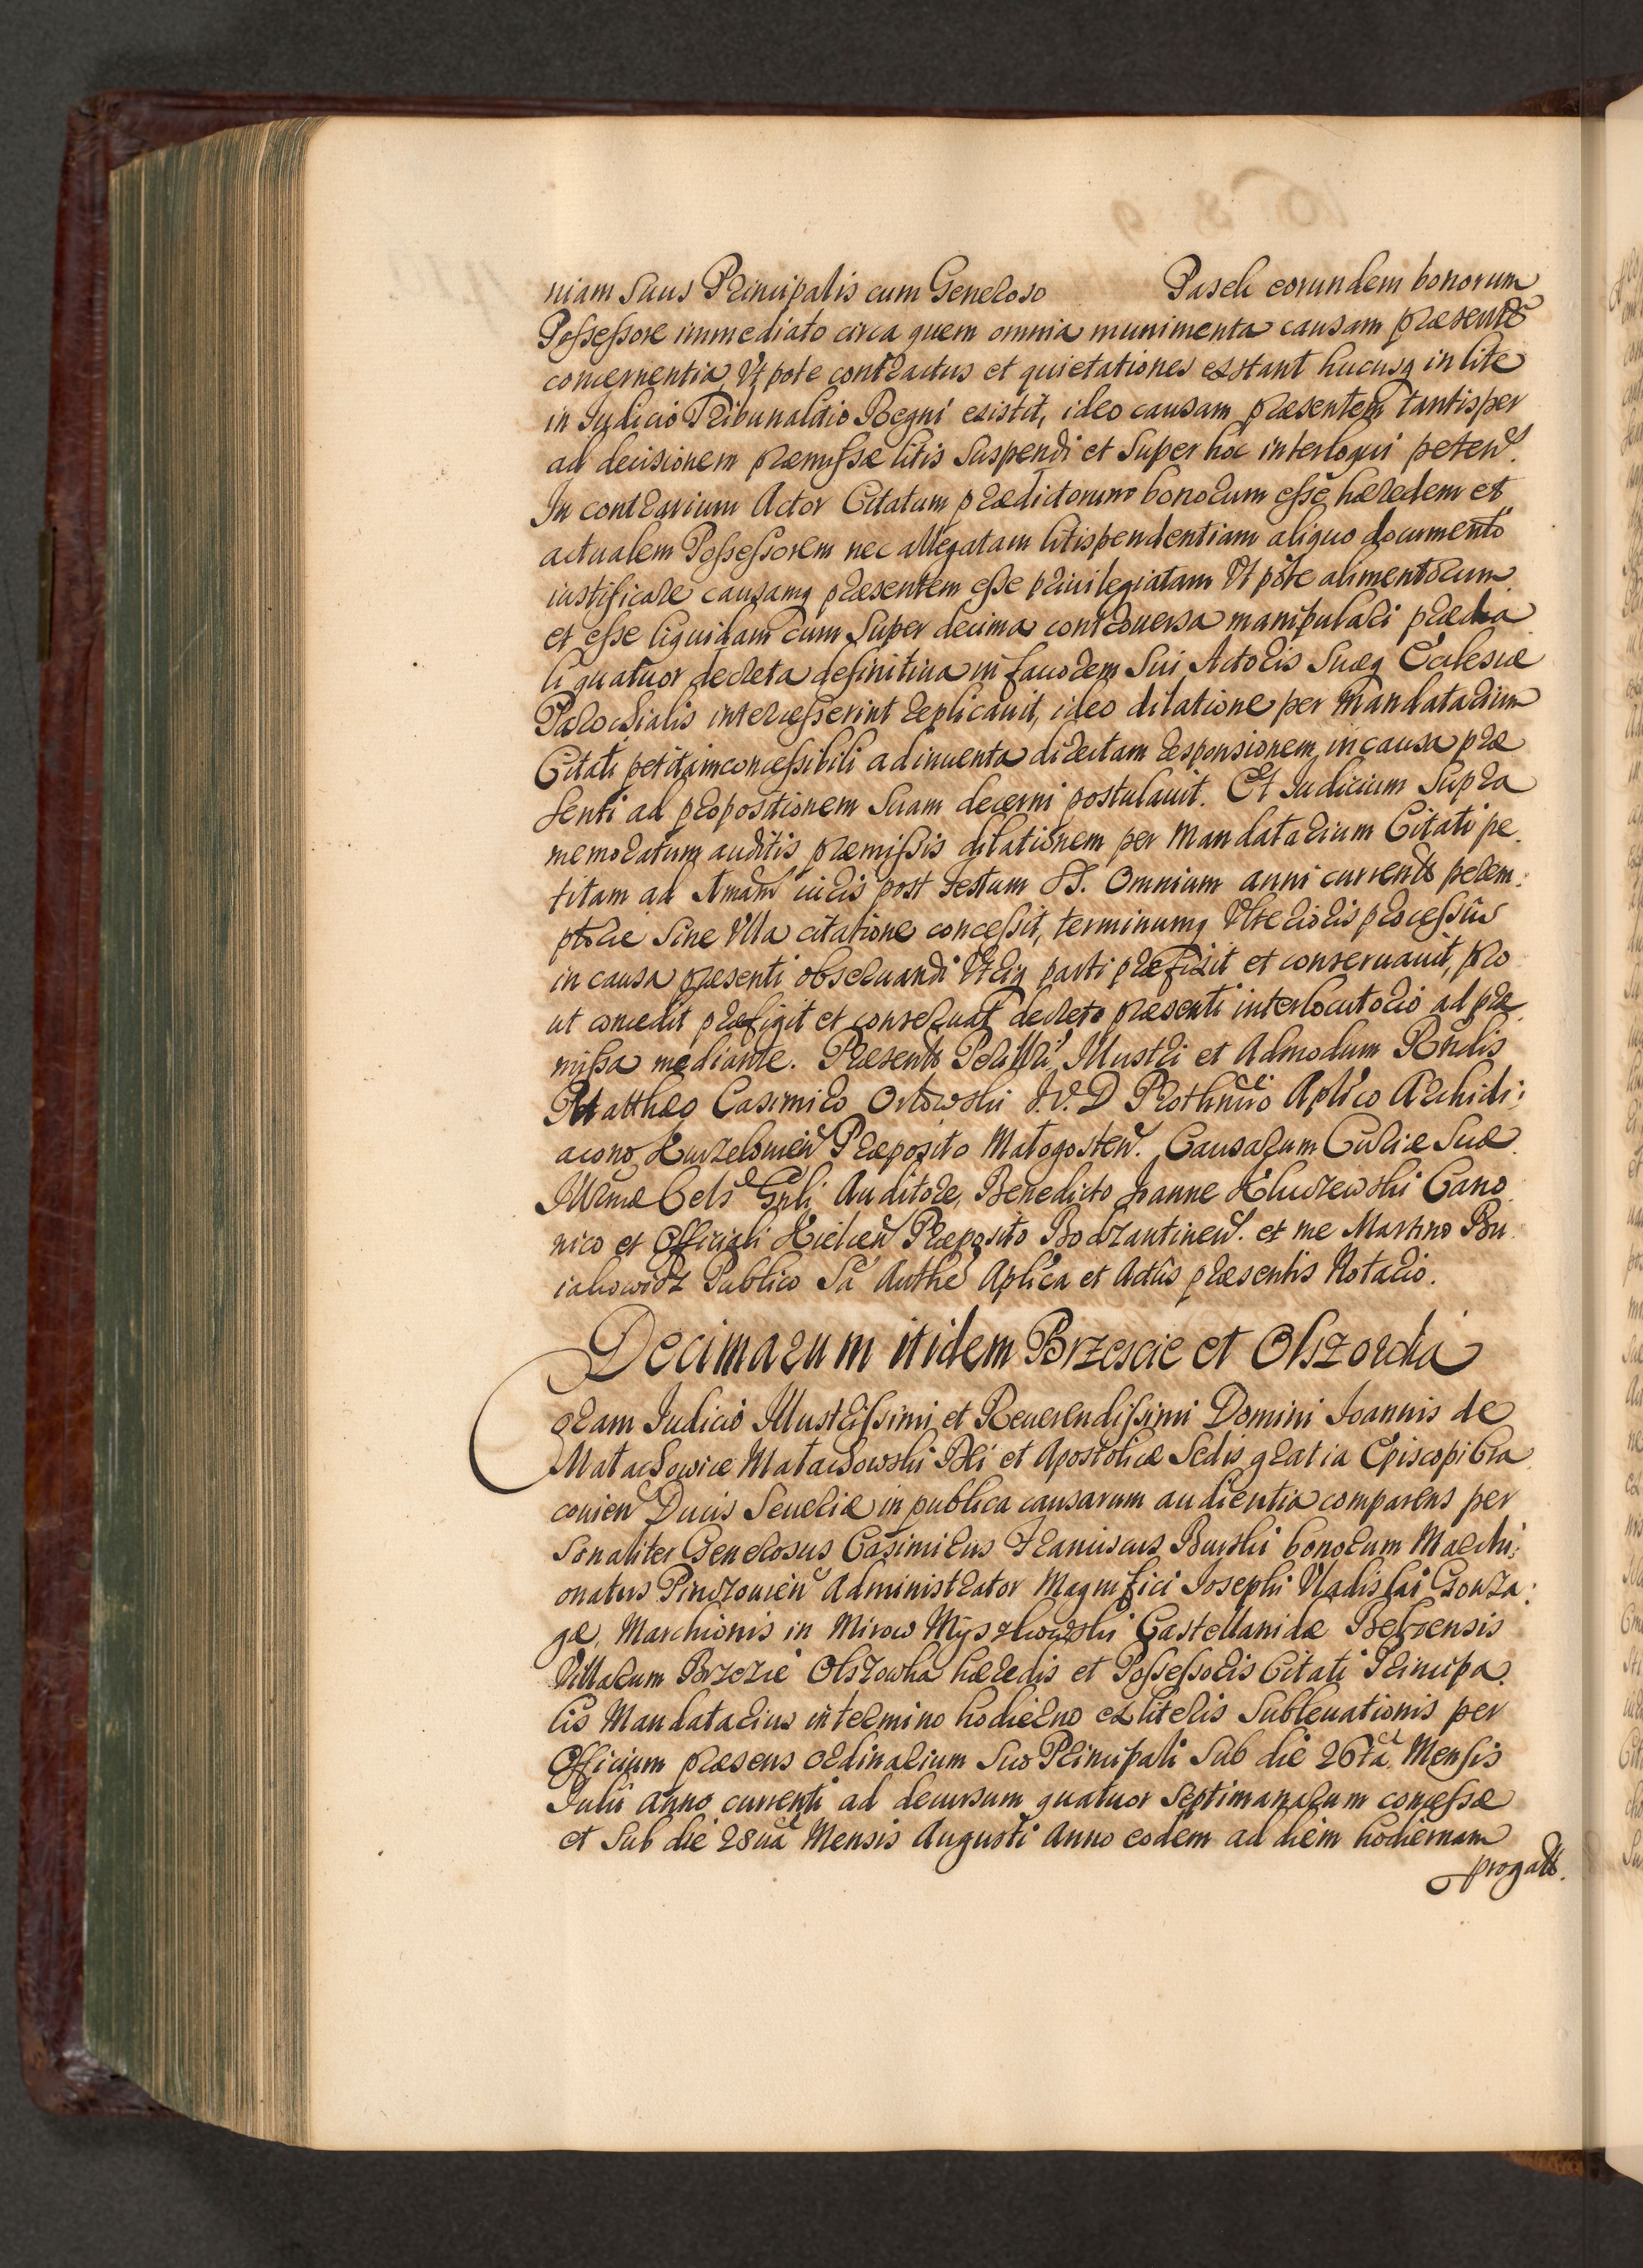 niam Suus Principalis cum Generoso Pasek eorundem bonorum
Possessore immediato circa quem omnia munimenta causam præsentē
concernentia, Vtpote contractus et quietationes exstant hucusq in lite
in Iudicio Tribunalitio Regni existit, ideo causam præsentem tantisper
ad decisionem præmissæ litis Suspendi et Super hoc interloqui peten.
In contrarium Actor Citatum prædictorum bonorum esse hæredem et
actualem Possessorem nec allegatam litispendentiam aliquo documento
iustificare causamq præsentem esse priuilegiatam Vt pote alimentorum
et esse liquidam cum Super decima controuersa manipulari prædia
li quatuor decreta definitiua in fauorem Sui Actoris Suæq Ecclesiæ
Parochialis intercesserint replicauit, ideo dilatione per Mandatarium
Citati petita inconcessibili adinuenta directam responsionem in causa præ
senti ad propositionem Suam decerni postulauit. Et Iudicium Supra
memoratum auditis præmissis dilationem per Mandatarium Citati pe
titam ad Amam iuris post Festum SS. Omnium anni currentis perem:
ptorie Sine Vlla citatione concessit, terminumq Vlterioris processus
in causa præsenti obseruandi Vtriq parti præfixit et conseruauit, pro
ut concedit præfigit et conseruat decreto præsenti interlocutorio ad præ
missa mediante. Præsentb Perillri, Illustri et Admodum Rndis
Matthæo Casimiro Orłowski I.V.D Prothnrio Aplico Archidi:
acono Kurzelouien Præposito Małogosten. Causarum Curiæ Suæ
Illrmæ Cels Gnli Auditore, Benedicto Joanne Chudzewski Cano
nico et Officiali Kielcen Præposito Bodzantinen. et me Martino Bu
iakowicz Publico Sa Authe Aplica et Actus præsentis Notario.
Decimarum itidem Brzescie et Olszowka
Coram Iudicio Illustrissimi et Reuerendissimi Domini Ioannis de
Małachowice Małachowski Dei et Apostolicæ Sedis gratia Episcopi Cra
couien Ducis Seueriæ in publica causarum audientia comparens per
Sonaliter Generosus Casimirus Franciscus Burski bonorum Marchi:
onatus Pinczouien Administrator Magnifici Josephi Vladislai Gonza:
gæ, Marchionis in Mirow Myszkowski Castellanidæ Belzensis
Villarum Brzezie Olszowka hæredis et Possessoris Citati Principa
lis Mandatarius in termino hodierno ex literis Subleuationis per
Officium præsens ordinarium Suo Principali Sub die 26ta Mensis
Iulii anno currenti ad decursum quatuor Septimanarum concessæ
et Sub die 28ua Mensis Augusti Anno eodem ad diem hodiernam
progatis.